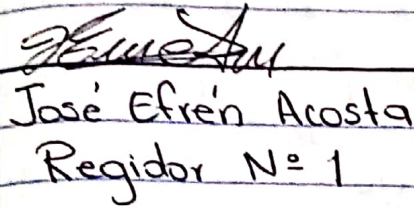 José Efrén Acosta
Regidor Nº 1